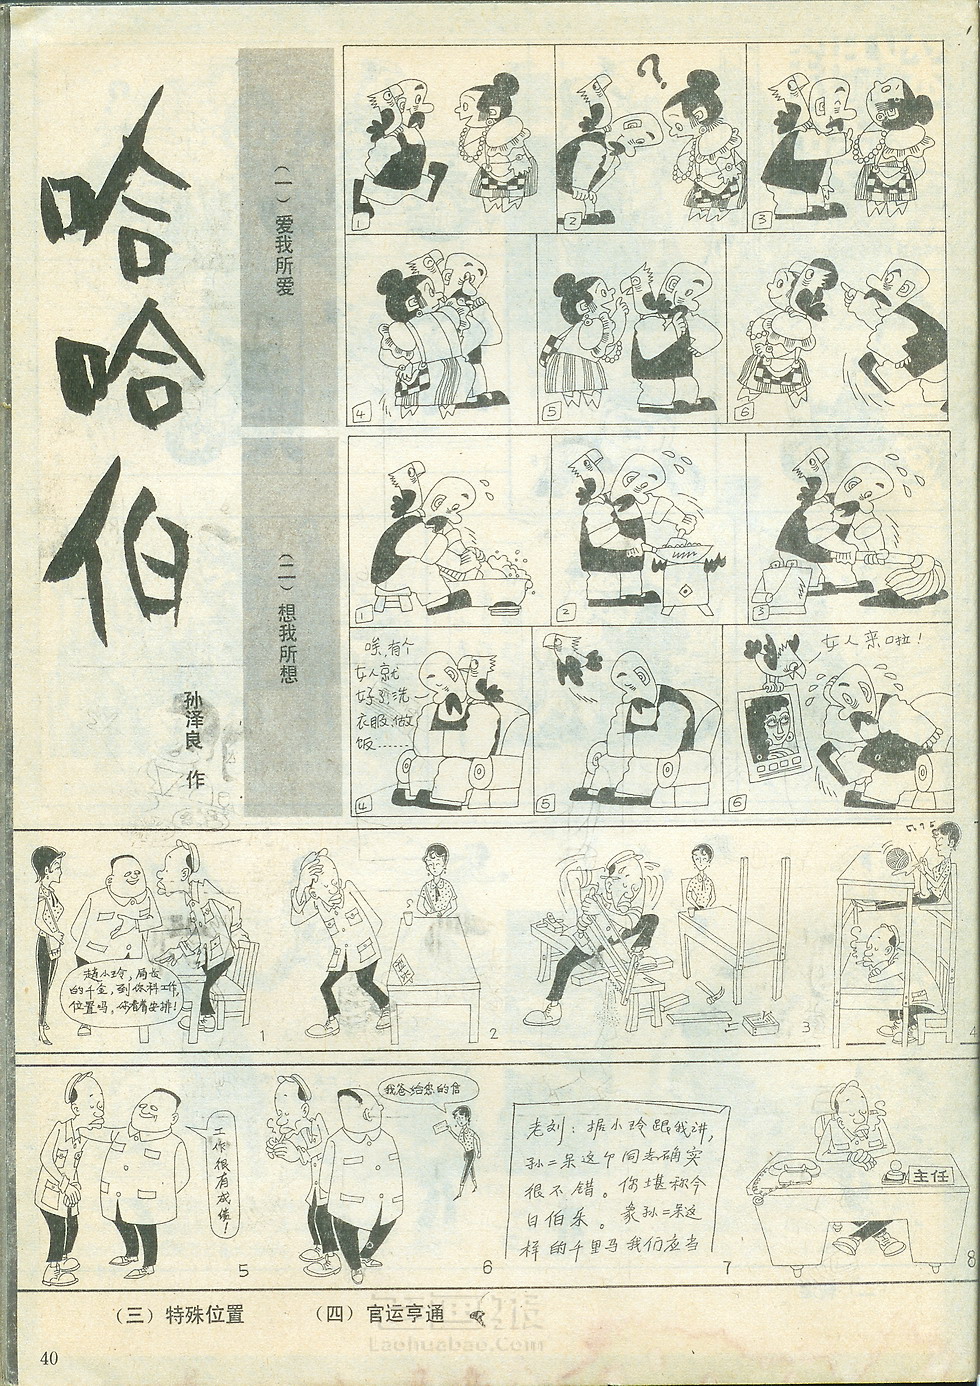 哈哈伯
孙泽良 作
（一）爱我所爱
?
1
2
3
4
5
6
（二）想我所想
1
2
3
唉,有个
女人就
好了,洗
衣服,做
饭……
4
5
女人来啦!
6
赵小玲,局长
的千金,到你科工作,
位置吗,你看着安排!
1
科长
2
3
4
工作很有成绩!
5
我爸给您的信
6
老刘：据小玲跟我讲,
孙二呆这个同志确实
很不错。你堪称今
日伯乐。象孙二呆这
样的千里马我们应当
7
主任
8
（三）特殊位置
（四）官运亨通
Laohuabao.Com
40